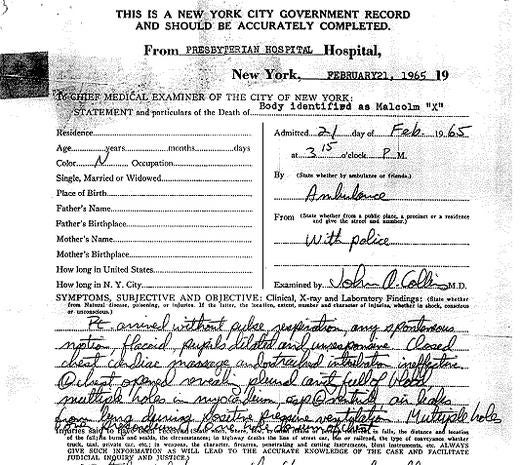 THIS IS A NEW YORK CITY GOVERNMENT RECORD
AND SHOULD BE ACCURATELY COMPLETED.
From PRESBYTERIAN HOSPITAL Hospital,
New York, FEBRUARY21, 1965 19
To CHIEF MEDICAL EXAMINER OF THE CITY OF NEW YORK:
STATEMENT and particulars of the Death of Body identified as Malcolm "X"
Residence
Age years months days
Color N Occupation
Single, Married or Widowed
Place of Birth
Father's Name
Father's Birthplace
Mother's Name
Mother's Birthplace
How long in United States
How long in N. Y. City
Admitted 21 day of Feb. 1965
at 3 15 o'clock P M.
By (State whether by ambulance or friends.)
Ambulance
From (State whether from a public place, a precinct or a residence
and give the street and number.)
With police
Examined by John A. Collins M.D.
SYMPTOMS, SUBJECTIVE AND OBJECTIVE: Clinical, X-ray and Laboratory Findings: (State whether
from Natural disease, poisoning, or injuries. If the latter, the location, extent, number and character of injuries, whether in shock, conscious
or unconscious.)
Pt arrived without pulse, respiration, any spontaneous
motion, flaccid, pupils dilated and unresponsive. Closed
chest cardiac massage and intubation ineffective.
chest opened reveals pleural cavity full of blood
multiple holes in myocardium, esp ventricle, air leaks
from lung during positive pressure ventilation. Multiple holes
one hole
the location and degree
of the falls, burns and scalds, the circumstances; in highway deaths the kind of street car, bus, or railroad, the type of conveyance whether
truck, taxi, private car, etc.; in weapons, the character, firearms, penetrating and cutting instruments, blunt instruments, etc. ALWAYS
GIVE SUCH INFORMATION AS WILL LEAD TO THE ACCURATE KNOWLEDGE OF THE CASE AND FACILITATE
JUDICIAL INQUIRY AND JUSTICE.)